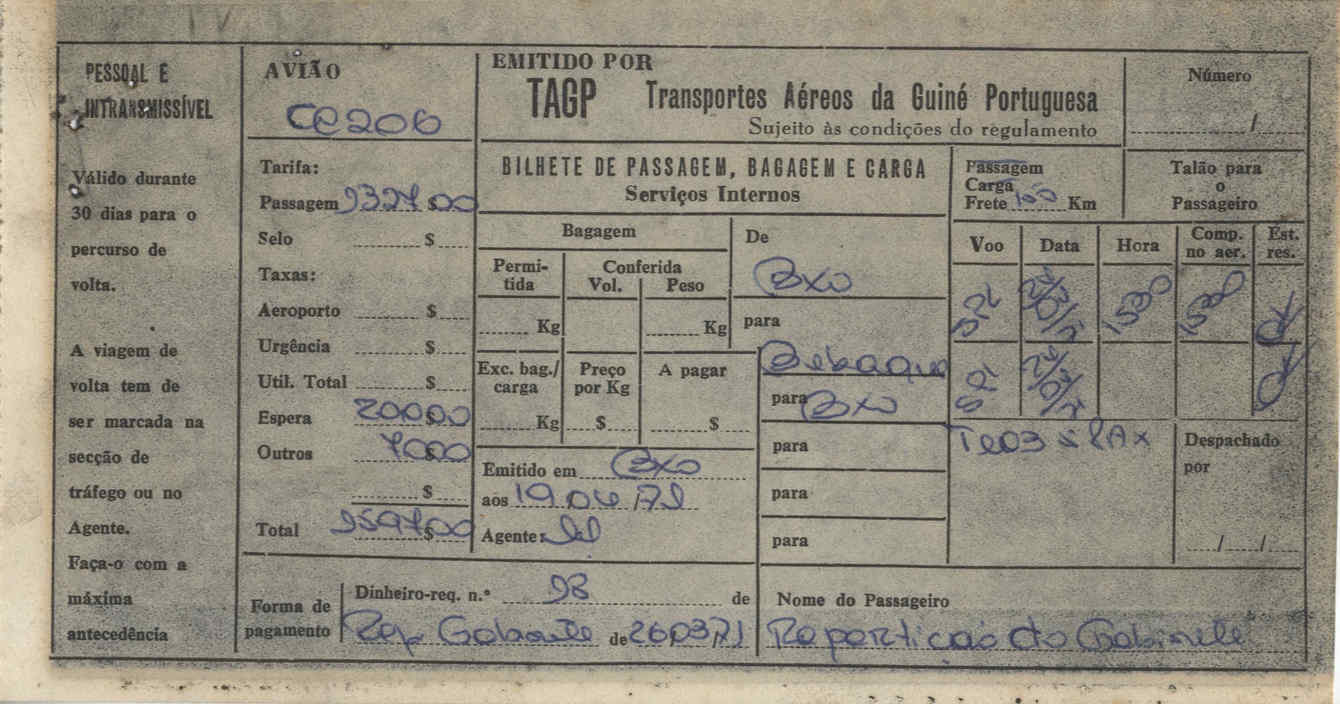 PESSOAL E
INTRANSMISSÍVEL
Válido durante
30 dias para o
percurso de
volta.
A viagem de
volta tem de
ser marcada na
secção de
tráfego ou no
Agente.
Faça-o com a
máxima
antecedência
AVIÃO
CR206
Tarifa:
Passagem $00
Selo $
Taxas:
Aeroporto $
Urgência $
Util. Total $
Espera 200$00
Outros $00
$
Total $00
EMITIDO POR
TAGP Transportes Aéreos da Guiné Portuguesa
Sujeito às condições do regulamento
Número
/
BILHETE DE PASSAGEM, BAGAGEM E CARGA
Serviços Internos
Passagem
Carga
Frete 150 Km
Talão para
o
Passageiro
Bagagem
Permi-
tida
Conferida
Vol. Peso
Kg Kg
Exc. bag./
carga
Preço
por Kg
A pagar
Kg $ $
De
BXO
para
Bubaque
para BXO
para
para
para
Voo Data Hora Comp.
no aer.
Est.
res.
1500 1500 OK
OK
Despachado
por
/ /
Emitido em BXO
aos 19.04.71
Agente:
Forma de
pagamento
Dinheiro-req. n.º 98 de
Rep Gabinete de 260371
Nome do Passageiro
Repartição do Gabinete